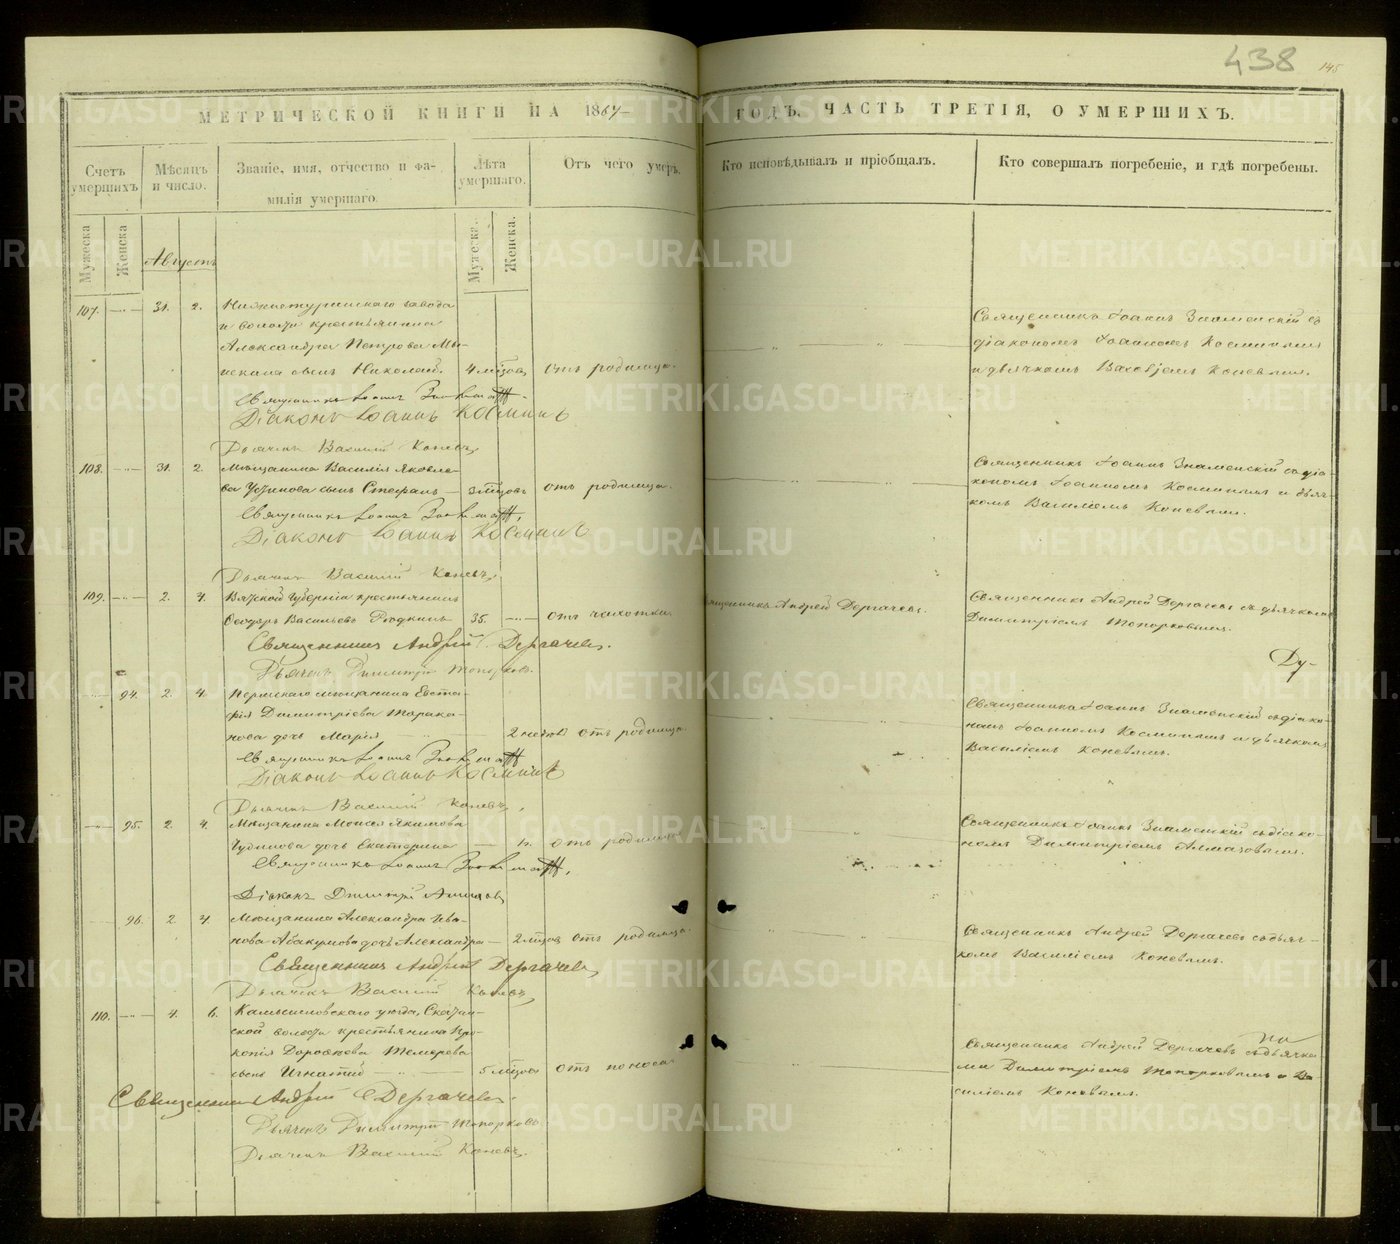 438
145
МЕТРИЧЕСКОЙ КНИГИ НА 1867
ГОДЪ, ЧАСТЬ ТРЕТІЯ, О УМЕРШИХЪ.
Счетъ умершихъ.
Мѣсяцъ и число.
Званіе, имя, отчество и фамилія умершаго.
Лѣта умершаго.
Отъ чего умеръ.
Кто исповѣдывалъ и пріобщалъ.
Кто совершалъ погребеніе, и гдѣ погребены.
Мужеска
Женска
Августъ
Мужеска.
Женска.
107. 31. 2. Нижнетуринскаго завода
и волости крестьянина
Александра Петрова
сынъ Николай. 4 мѣсяц. отъ родимца.
Священникъ Іоаннъ Знаменскій съ
діакономъ Іоанномъ Косминымъ
и дьячкомъ Василіемъ Коневымъ.
Священникъ Іоаннъ
Діаконъ Іоаннъ Косминъ
Дьячекъ Василій Коневъ
108. 31. 2. Мѣщанина Василія Яковле-
ва Устинова сынъ Стефанъ 3 мѣсяцовъ отъ родимца.
Священникъ Іоаннъ Знаменскій съ діа-
кономъ Іоанномъ Косминымъ и дьяч-
комъ Василіемъ Коневымъ.
Священникъ Іоаннъ
Діаконъ Іоаннъ Косминъ
Дьячекъ Василій Коневъ
109. 2. 4. Вятской губерніи крестьянинъ
Ѳеодоръ Васильевъ 35. отъ чахотки
Священникъ Андрей Дергачевъ.
Священникъ Андрей Дергачевъ съ дьячкомъ
Димитріемъ Топорковымъ.
Священникъ Андрей Дергачевъ.
Дьячекъ Димитрій Топорковъ.
Ду-
94. 2. 4. Пермскаго мѣщанина Евста-
фія Димитріева Тарака-
нова дочь Марія 2 недѣл отъ родимца.
Священникъ Іоаннъ Знаменскій съ діако-
номъ Іоанномъ Косминымъ и дьячкомъ
Василіемъ Коневымъ.
Священникъ Іоаннъ
Діаконъ Іоаннъ Косминъ
Дьячекъ Василій Коневъ
95. 2. 4. Мѣщанина Моисея Якимова
дочь Екатерина отъ родимца
Священникъ Іоаннъ Знаменскій съ діако-
номъ Димитріемъ Алмазовымъ.
Священникъ Іоаннъ
Діаконъ Димитрій Алмазовъ
96. 2. 4. Мѣщанина Александра Ива-
нова Абакумова дочь Александра 2 мѣсяцов отъ родимца.
Священникъ Андрей Дергачевъ съ дьяч-
комъ Василіемъ Коневымъ.
Священникъ Андрей Дергачевъ
Дьячекъ Василій Коневъ
110. 4. 6. Камышловскаго уѣзда,
ской волости крестьянина Про-
копія
сынъ Игнатій 5 мѣсяцов отъ поноса
на
Священникъ Андрей Дергачевъ съ дьячка-
ми Димитріемъ Топорковымъ и Ва-
силіемъ Коневымъ.
Священникъ Андрей Дергачевъ.
Дьячекъ Димитрій Топорковъ
Дьячекъ Василій Коневъ.
METRIKI.GASO-URAL.RU